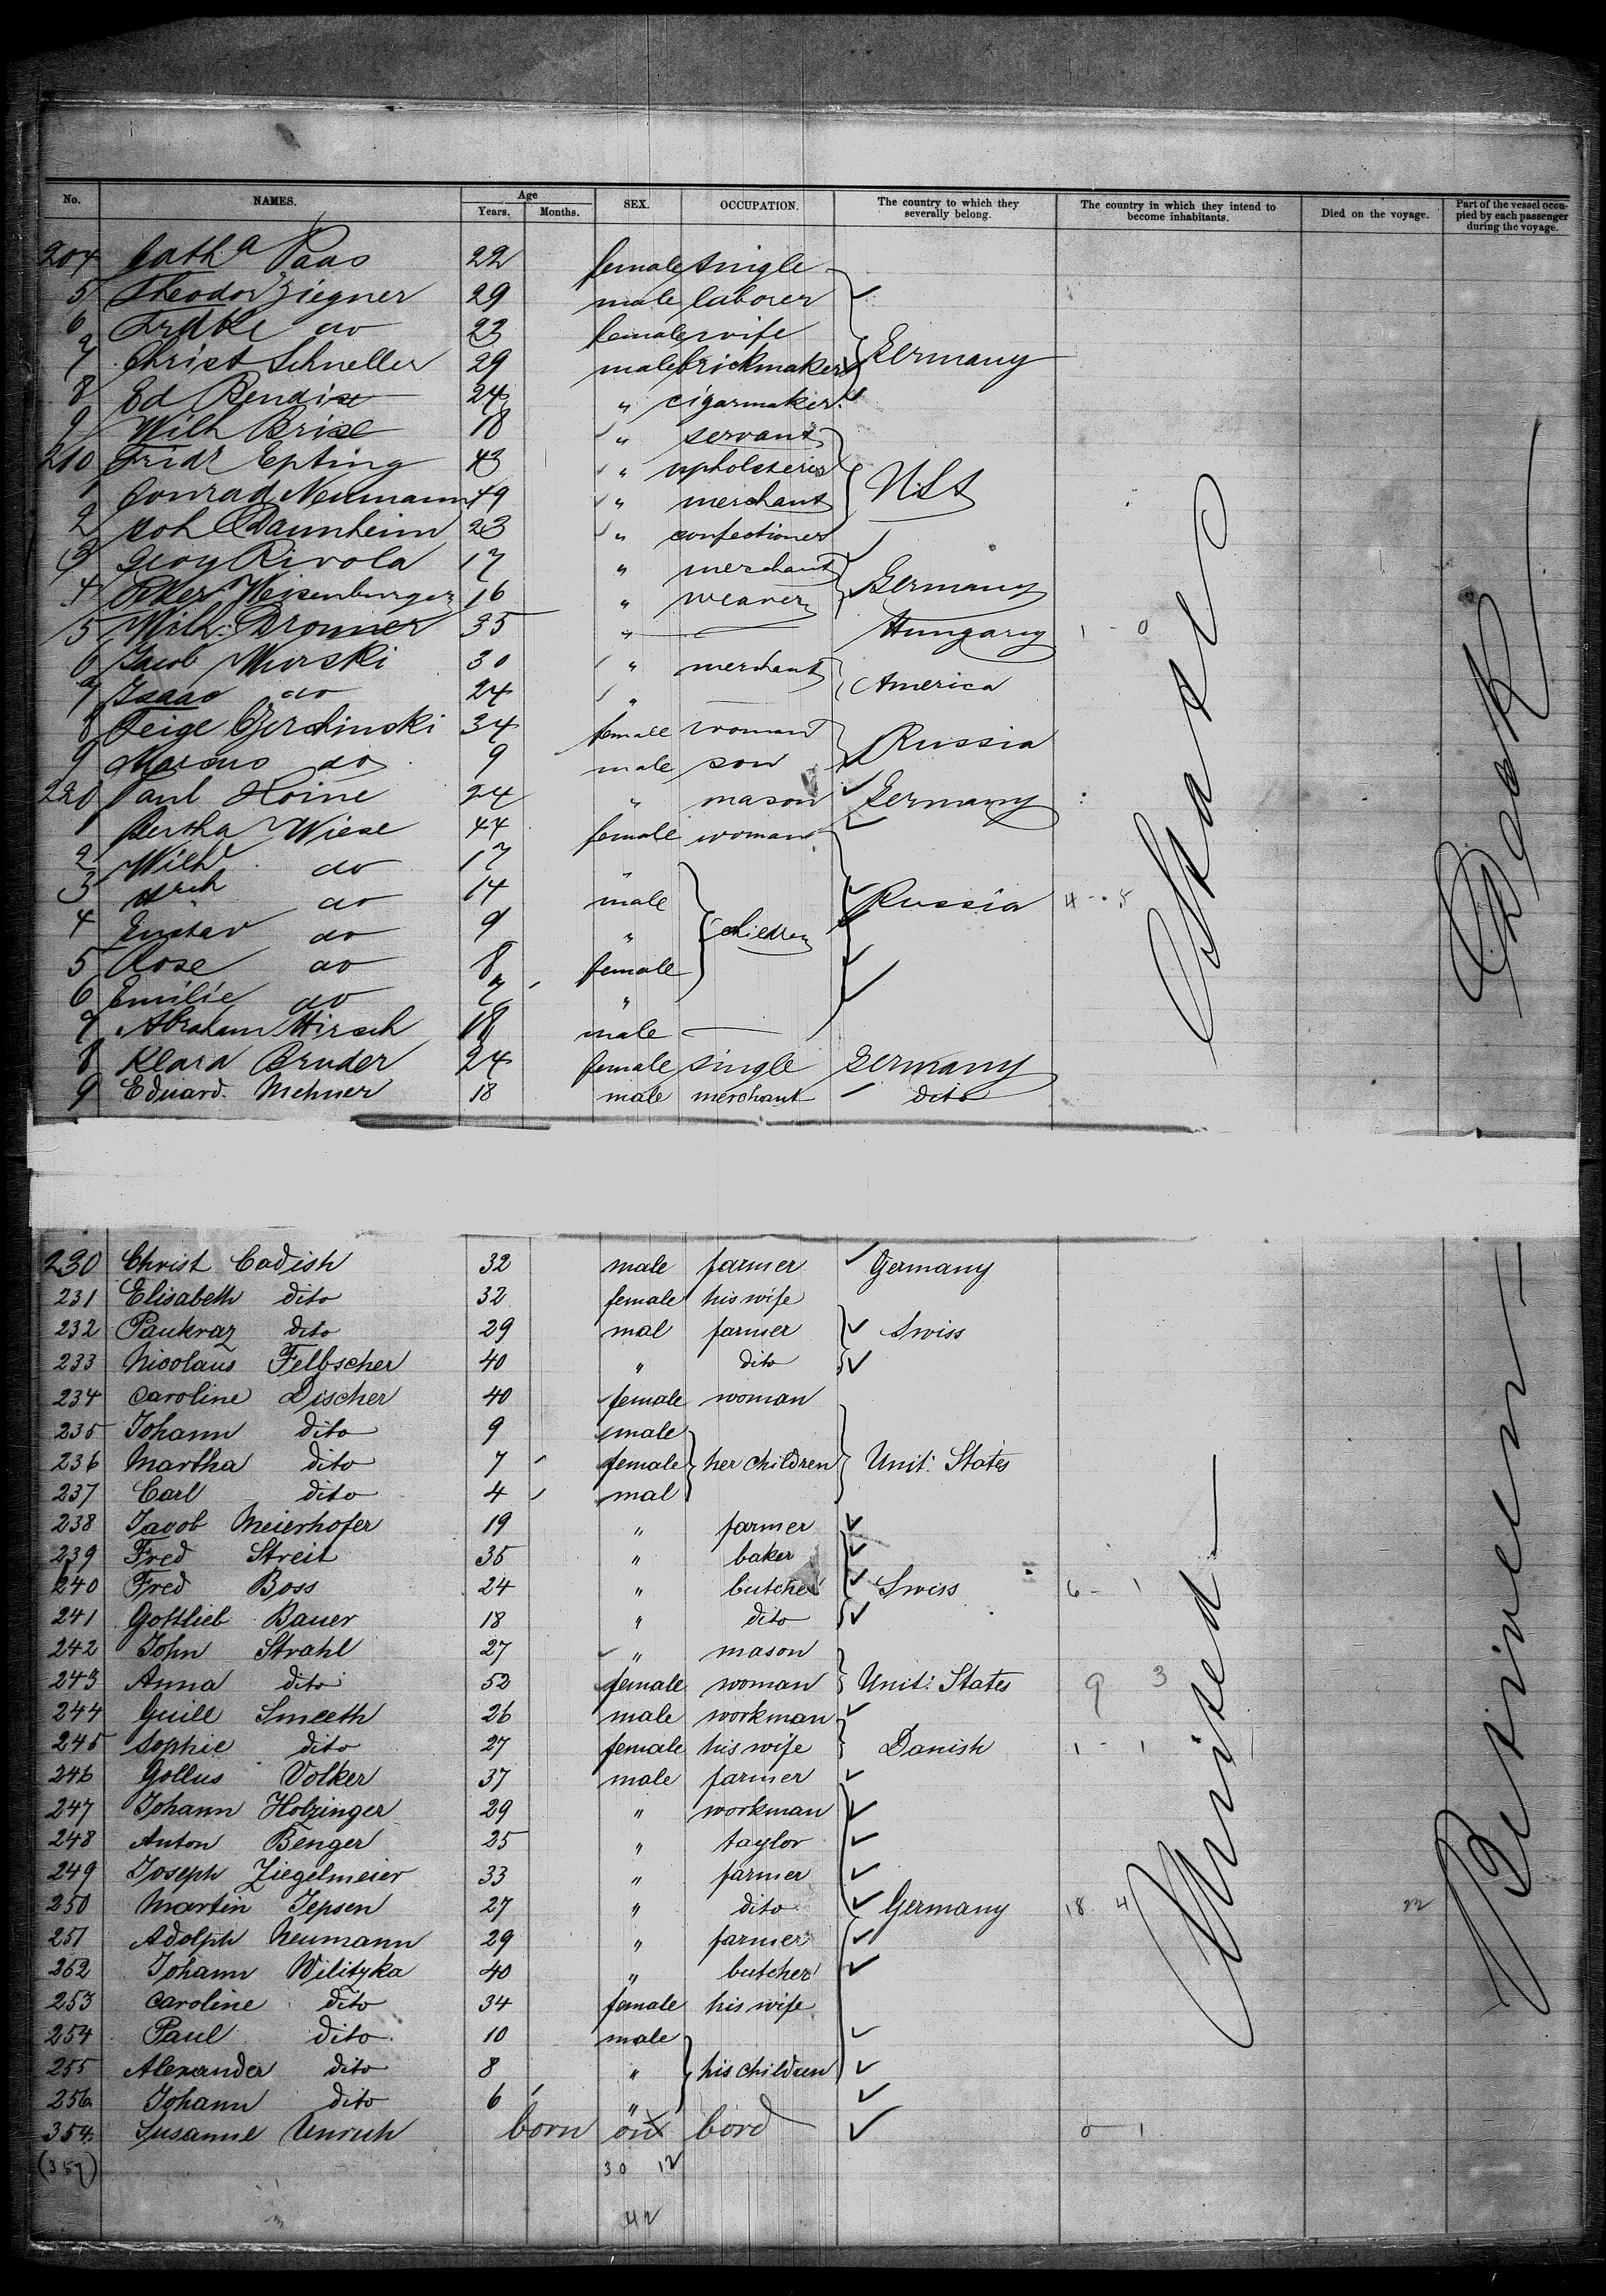 No. NAMES. Age Years. Months. SEX. OCCUPATION. The country to which they severally belong. The country in which they intend to become inhabitants. Died on the voyage. Part of the vessel occupied by each passenger during the voyage.
204 Cath^a Paas 22 female single
5 Theodor Ziegner 29 male laborer
6 Frdke do 23 female wife
7 Christ Schneller 29 male brickmaker Germany
8 Ed Bendix 24 " cigarmaker
9 Wilh Brise 18 " servant
210 Fridr Epting 43 " upholsterer
1 Conrad Neumann 49 " merchant U.St
2 Joh Dannheim 23 " confectioner
3 Georg Rivola 17 " merchant
4 Peter Weisenburger 16 " weaver Germany
5 Wilh: Bronner 35 " — Hungary 1 - 0
6 Jacob Murski 30 " merchant
7 Isaac do 24 " America
8 Feige Gerchinski 34 female woman
9 Marcus do 9 male son Russia
220 Paul Hoine 24 " mason Germany
1 Bertha Wiese 44 female woman
2 Wilh do 17 "
3 Hrch do 14 male Russia 4 - 5
4 Gustav do 9 " children
5 Rose do 8 female
6 Emilie do 7 "
7 Abraham Hirsch 18 male —
8 Klara Bruder 24 female single Germany
9 Eduard Mehner 18 male merchant dito
States
Deck
230 Christ Cadish 32 male farmer Germany
231 Elisabeth dito 32 female his wife
232 Pankraz dito 29 mal farmer Swiss
233 Nicolaus Felbscher 40 " dito
234 Caroline Discher 40 female woman
235 Johann dito 9 male
236 Martha dito 7 female her children Unit: States
237 Carl dito 4 mal
238 Jacob Meierhofer 19 " farmer
239 Fred Streit 35 " baker
240 Fred Boss 24 " butcher Swiss 6 - 1
241 Gottlieb Bauer 18 " dito
242 John Strahl 27 " mason
243 Anna dito 52 female woman Unit: States 9 3
244 Guill Smeeth 26 male workman
245 Sophie dito 27 female his wife Danish 1 - 1
246 Gollus Volker 37 male farmer
247 Johann Holzinger 29 " workman
248 Anton Benger 25 " taylor
249 Joseph Ziegelmeier 33 " farmer
250 Martin Jepsen 27 " dito Germany 18 4
251 Adolph Neumann 29 " farmer
252 Johann Wilityka 40 " butcher
253 Caroline dito 34 female his wife
254 Paul dito 10 male
255 Alexander dito 8 " his children
256 Johann dito 6 "
354 Susanne Unruh born on bord 0 1
(357) 30 12
42
United
Between